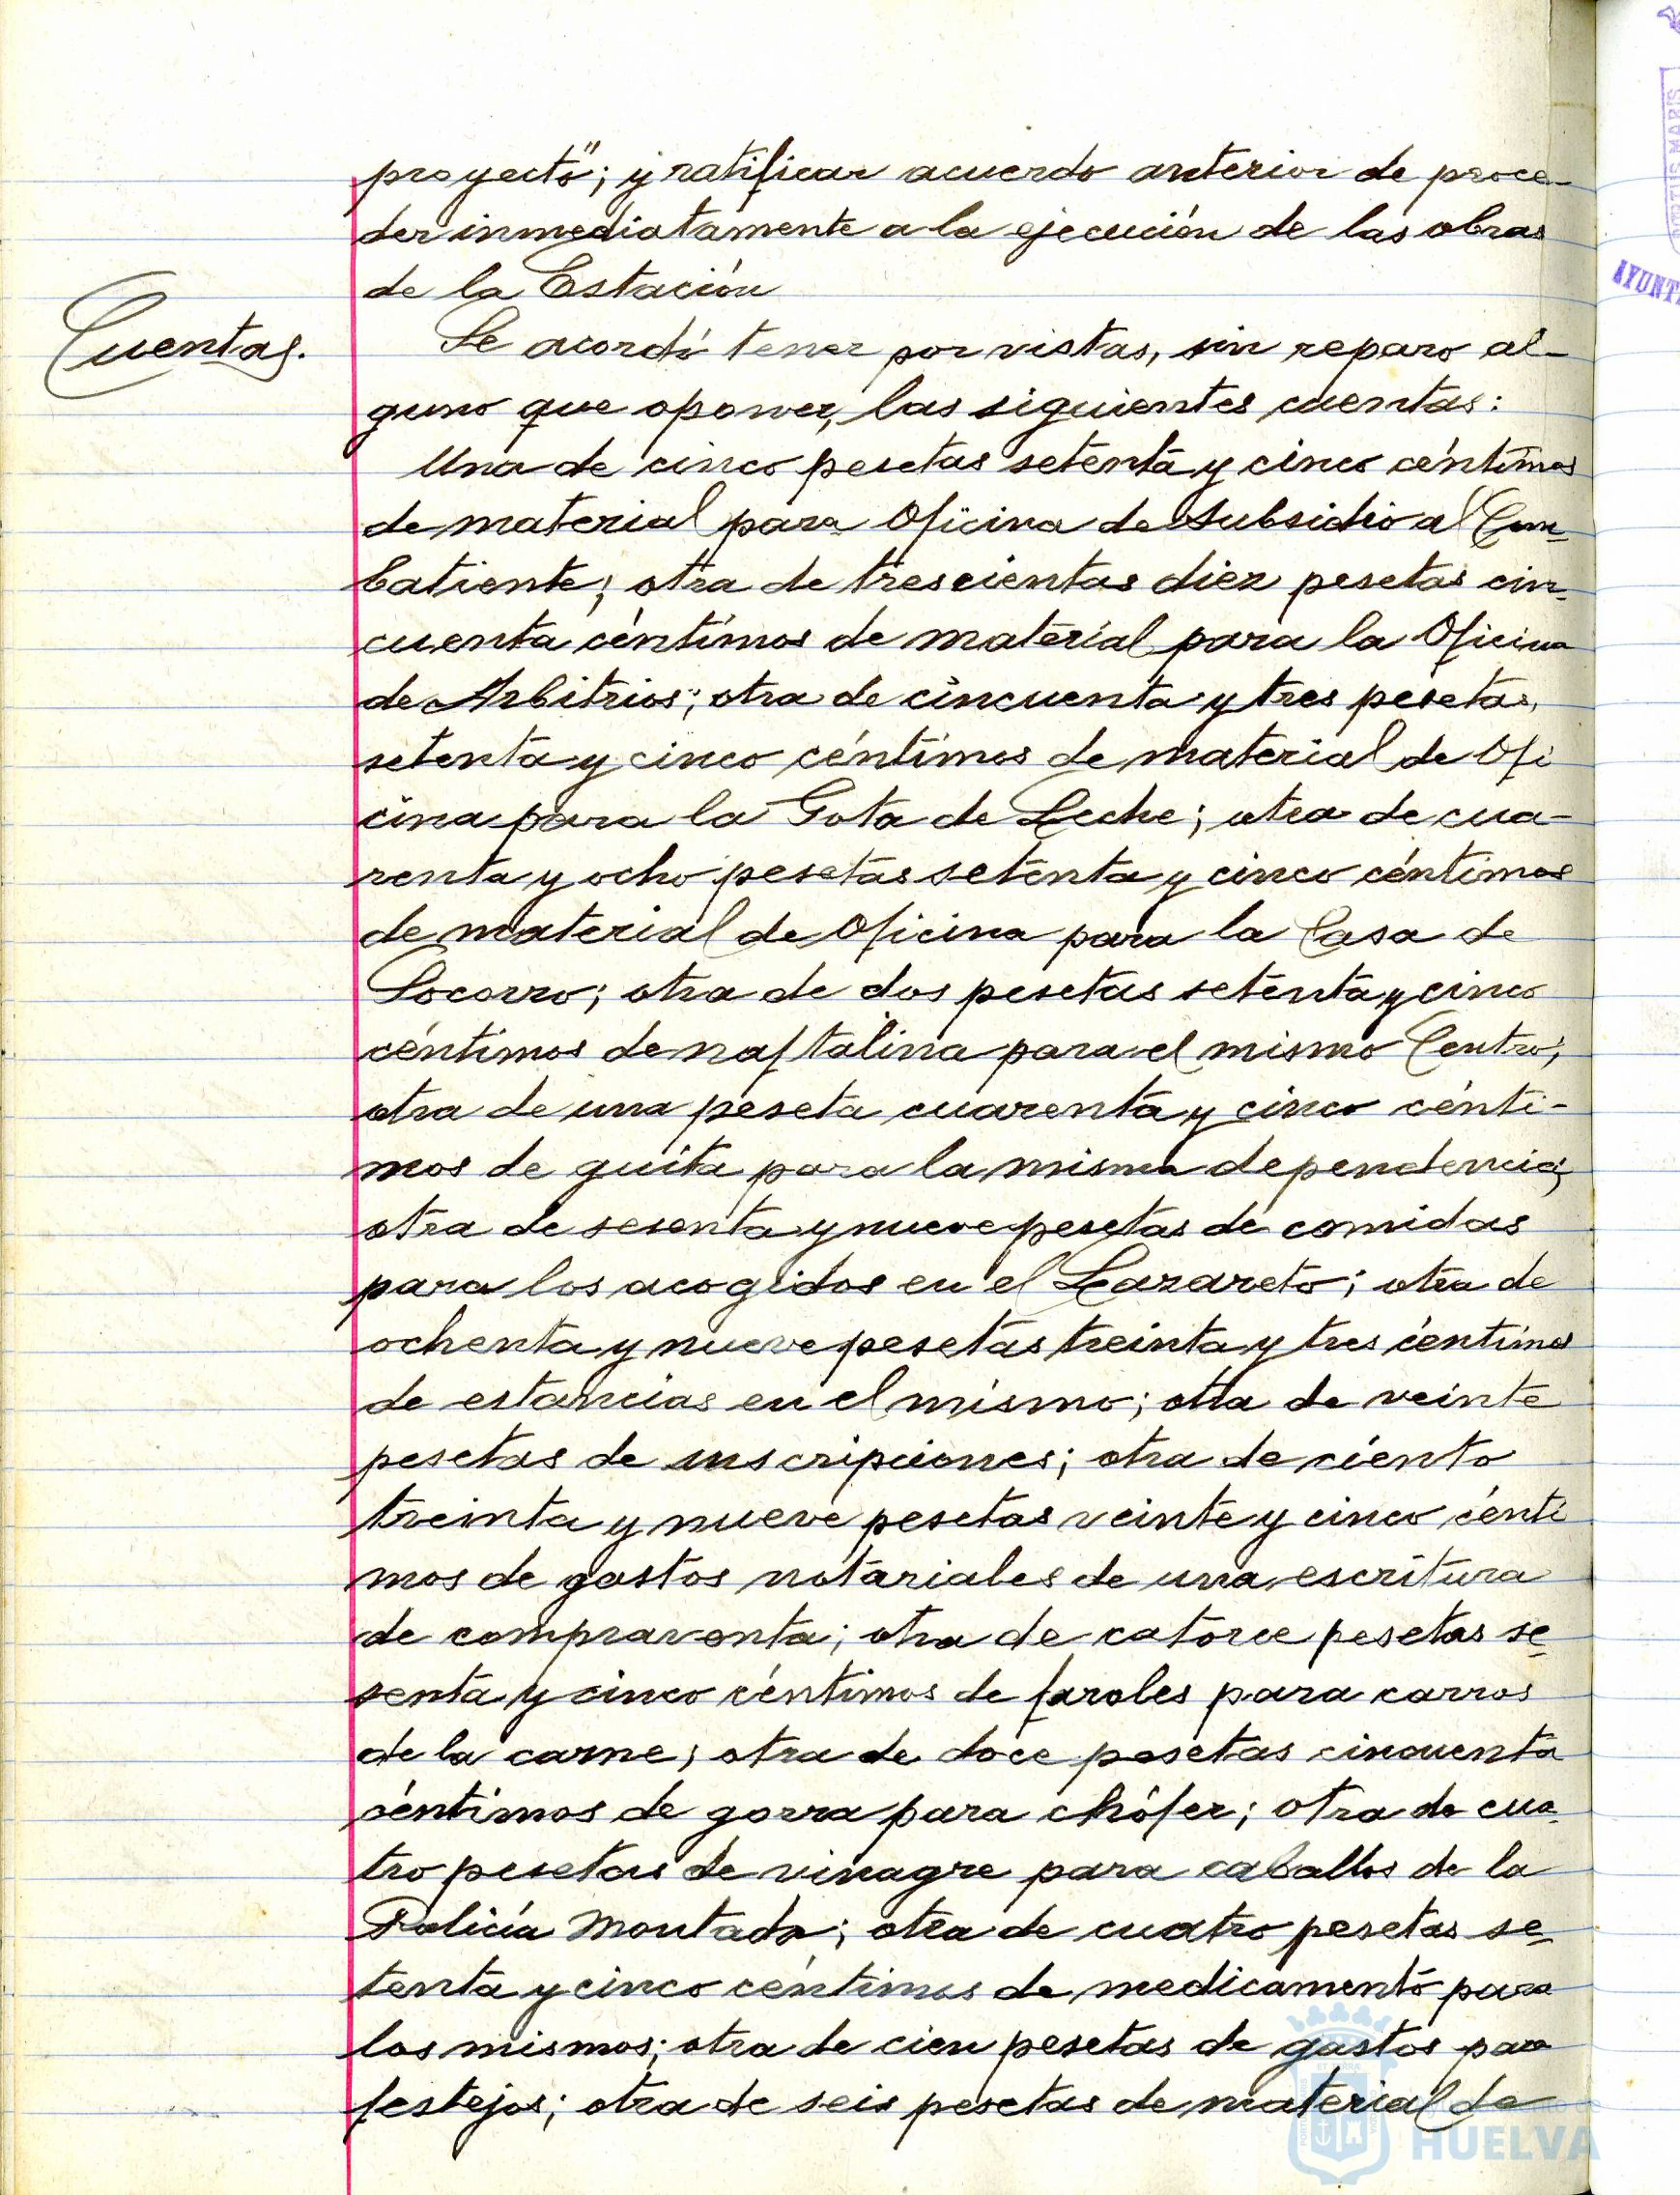 proyecto"; y ratificar acuerdo anterior de proce-
der inmediatamente a la ejecución de las obras
de la Estación
Cuentas.
Se acordó tener por vistas, sin reparo al-
guno que oponer, las siguientes cuentas:
Una de cinco pesetas setenta y cinco céntimos
de material para Oficina de Subsidio al Com-
batiente; otra de trescientas diez pesetas cin-
cuenta céntimos de material para la Oficina
de Arbitrios; otra de cincuenta y tres pesetas,
setenta y cinco céntimos de material de Ofi
cina para la Gota de Leche; otra de cua-
renta y ocho pesetas setenta y cinco céntimos
de material de Oficina para la Casa de
Socorro; otra de dos pesetas setenta y cinco
céntimos de naftalina para el mismo Centro;
otra de una peseta cuarenta y cinco cénti-
mos de guita para la misma dependencia;
otra de sesenta y nueve pesetas de comidas
para los acogidos en el Lazareto; otra de
ochenta y nueve pesetas treinta y tres céntimos
de estancias en el mismo; otra de veinte
pesetas de inscripciones; otra de ciento
treinta y nueve pesetas veinte y cinco cénti
mos de gastos notariales de una escritura
de compraventa; otra de catorce pesetas se-
senta y cinco céntimos de faroles para carros
de la carne; otra de doce pesetas cincuenta
céntimos de gorra para chófer; otra de cua-
tro pesetas de vinagre para caballos de la
Policía Montada; otra de cuatro pesetas se-
tenta y cinco céntimos de medicamento para
los mismos; otra de cien pesetas de gastos para
festejos; otra de seis pesetas de material de
HUELVA